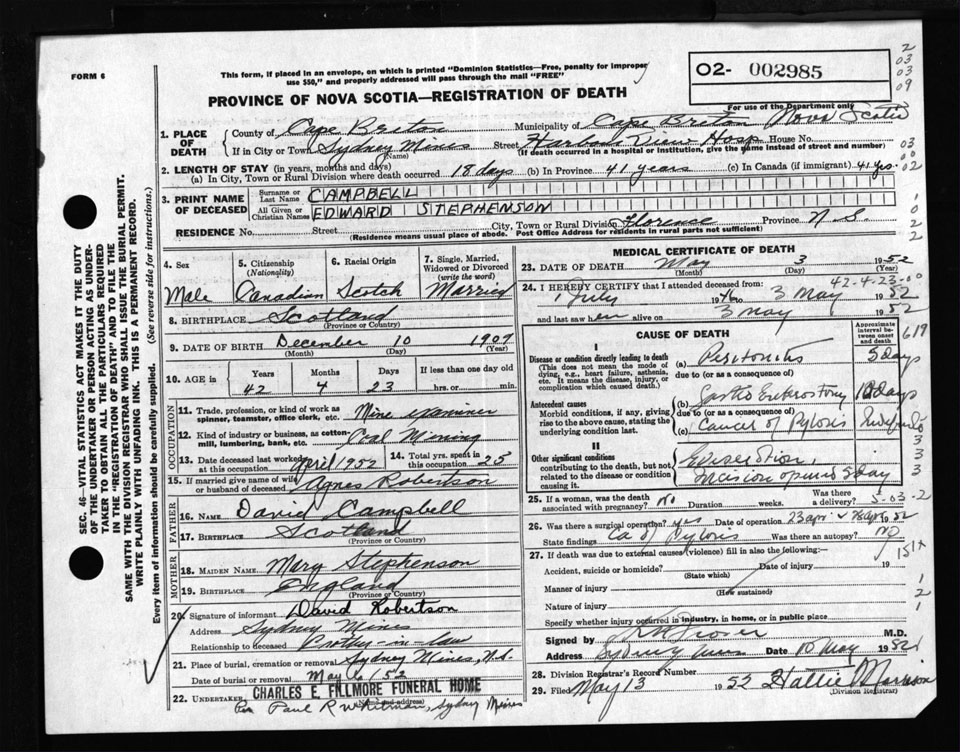 FORM 6
This form, if placed in an envelope, on which is printed "Dominion Statistics—Free, penalty for improper
use $50," and properly addressed will pass through the mail "FREE"
O2- 002985
PROVINCE OF NOVA SCOTIA—REGISTRATION OF DEATH
For use of the Department only
1. PLACE OF DEATH
County of Cape Breton Municipality of Cape Breton Nova Scotia
If in City or Town Sydney Mines Street Harbour View Hosp House No.
(Name) (If death occurred in a hospital or institution, give the name instead of street and number)
2. LENGTH OF STAY (in years, months and days)
(a) In City, Town or Rural Division where death occurred 18 days (b) In Province 41 years (c) In Canada (if immigrant) 41 yrs.
3. PRINT NAME OF DECEASED
Surname or Last Name CAMPBELL
All Given or Christian Names EDWARD STEPHENSON
RESIDENCE No. Street City, Town or Rural Division Florence Province N.S.
(Residence means usual place of abode. Post Office Address for residents in rural parts not sufficient)
4. Sex
Male
5. Citizenship (Nationality)
Canadian
6. Racial Origin
Scotch
7. Single, Married, Widowed or Divorced (write the word)
Married
8. BIRTHPLACE Scotland
(Province or Country)
9. DATE OF BIRTH December 10 1909
(Month) (Day) (Year)
10. AGE in Years Months Days If less than one day old
42 4 23 hrs. or min.
OCCUPATION
11. Trade, profession, or kind of work as spinner, teamster, office clerk, etc. Mine examiner
12. Kind of industry or business, as cotton-mill, lumbering, bank, etc. Coal Mining
13. Date deceased last worked at this occupation April 1952
14. Total yrs. spent in this occupation 25
15. If married give name of wife or husband of deceased Agnes Robertson
FATHER
16. Name David Campbell
17. Birthplace Scotland
(Province or Country)
MOTHER
18. Maiden Name Mary Stephenson
19. Birthplace England
(Province or Country)
20. Signature of informant David Robertson
Address Sydney Mines
Relationship to deceased Brother-in-law
21. Place of burial, cremation or removal Sydney Mines, N.S.
Date of burial or removal May 52
22. UNDERTAKER CHARLES E. FILLMORE FUNERAL HOME
(Name and address)
Per Paul R Whitman, Sydney Mines
MEDICAL CERTIFICATE OF DEATH
23. DATE OF DEATH May 3 1952
(Month) (Day) (Year)
42-4-23-00
24. I HEREBY CERTIFY that I attended deceased from:
1 July 19 to 3 May 1952
and last saw h alive on 3 May 1952
CAUSE OF DEATH
Approximate interval between onset and death
619
I
Disease or condition directly leading to death
(This does not mean the mode of dying, e.g., heart failure, asthenia, etc. It means the disease, injury, or complication which caused death.)
(a) Peritonitis 5 days
due to (or as a consequence of)
Antecedent causes
Morbid conditions, if any, giving rise to the above cause, stating the underlying condition last.
(b) Gastro Enterostomy 10 days
due to (or as a consequence of)
(c) Cancer of Pyloris
II
Other significant conditions
contributing to the death, but not related to the disease or condition causing it.
Evisceration
Incision opened 5 day
25. If a woman, was the death associated with pregnancy? No Duration weeks Was there a delivery?
5-03-2
26. Was there a surgical operation? yes Date of operation 23 Apr
State findings Ca of Pyloris Was there an autopsy? no
151x
27. If death was due to external causes (violence) fill in also the following:—
Accident, suicide or homicide? Date of injury 19
(State which)
Manner of injury
(How sustained)
Nature of injury
Specify whether injury occurred in industry, in home, or in public place
Signed by M.D.
Address Sydney Mines Date 10 May 1952
28. Division Registrar's Record Number
29. Filed May 13 1952 Hattie Morrison
(Division Registrar)
SEC. 46 VITAL STATISTICS ACT MAKES IT THE DUTY
OF THE UNDERTAKER OR PERSON ACTING AS UNDER-
TAKER TO OBTAIN ALL THE PARTICULARS REQUIRED
IN THE "REGISTRATION OF DEATH" AND TO FILE THE
SAME WITH THE DIVISION REGISTRAR WHO SHALL ISSUE THE BURIAL PERMIT.
WRITE PLAINLY WITH UNFADING INK. THIS IS A PERMANENT RECORD.
Every item of information should be carefully supplied. (See reverse side for instructions.)